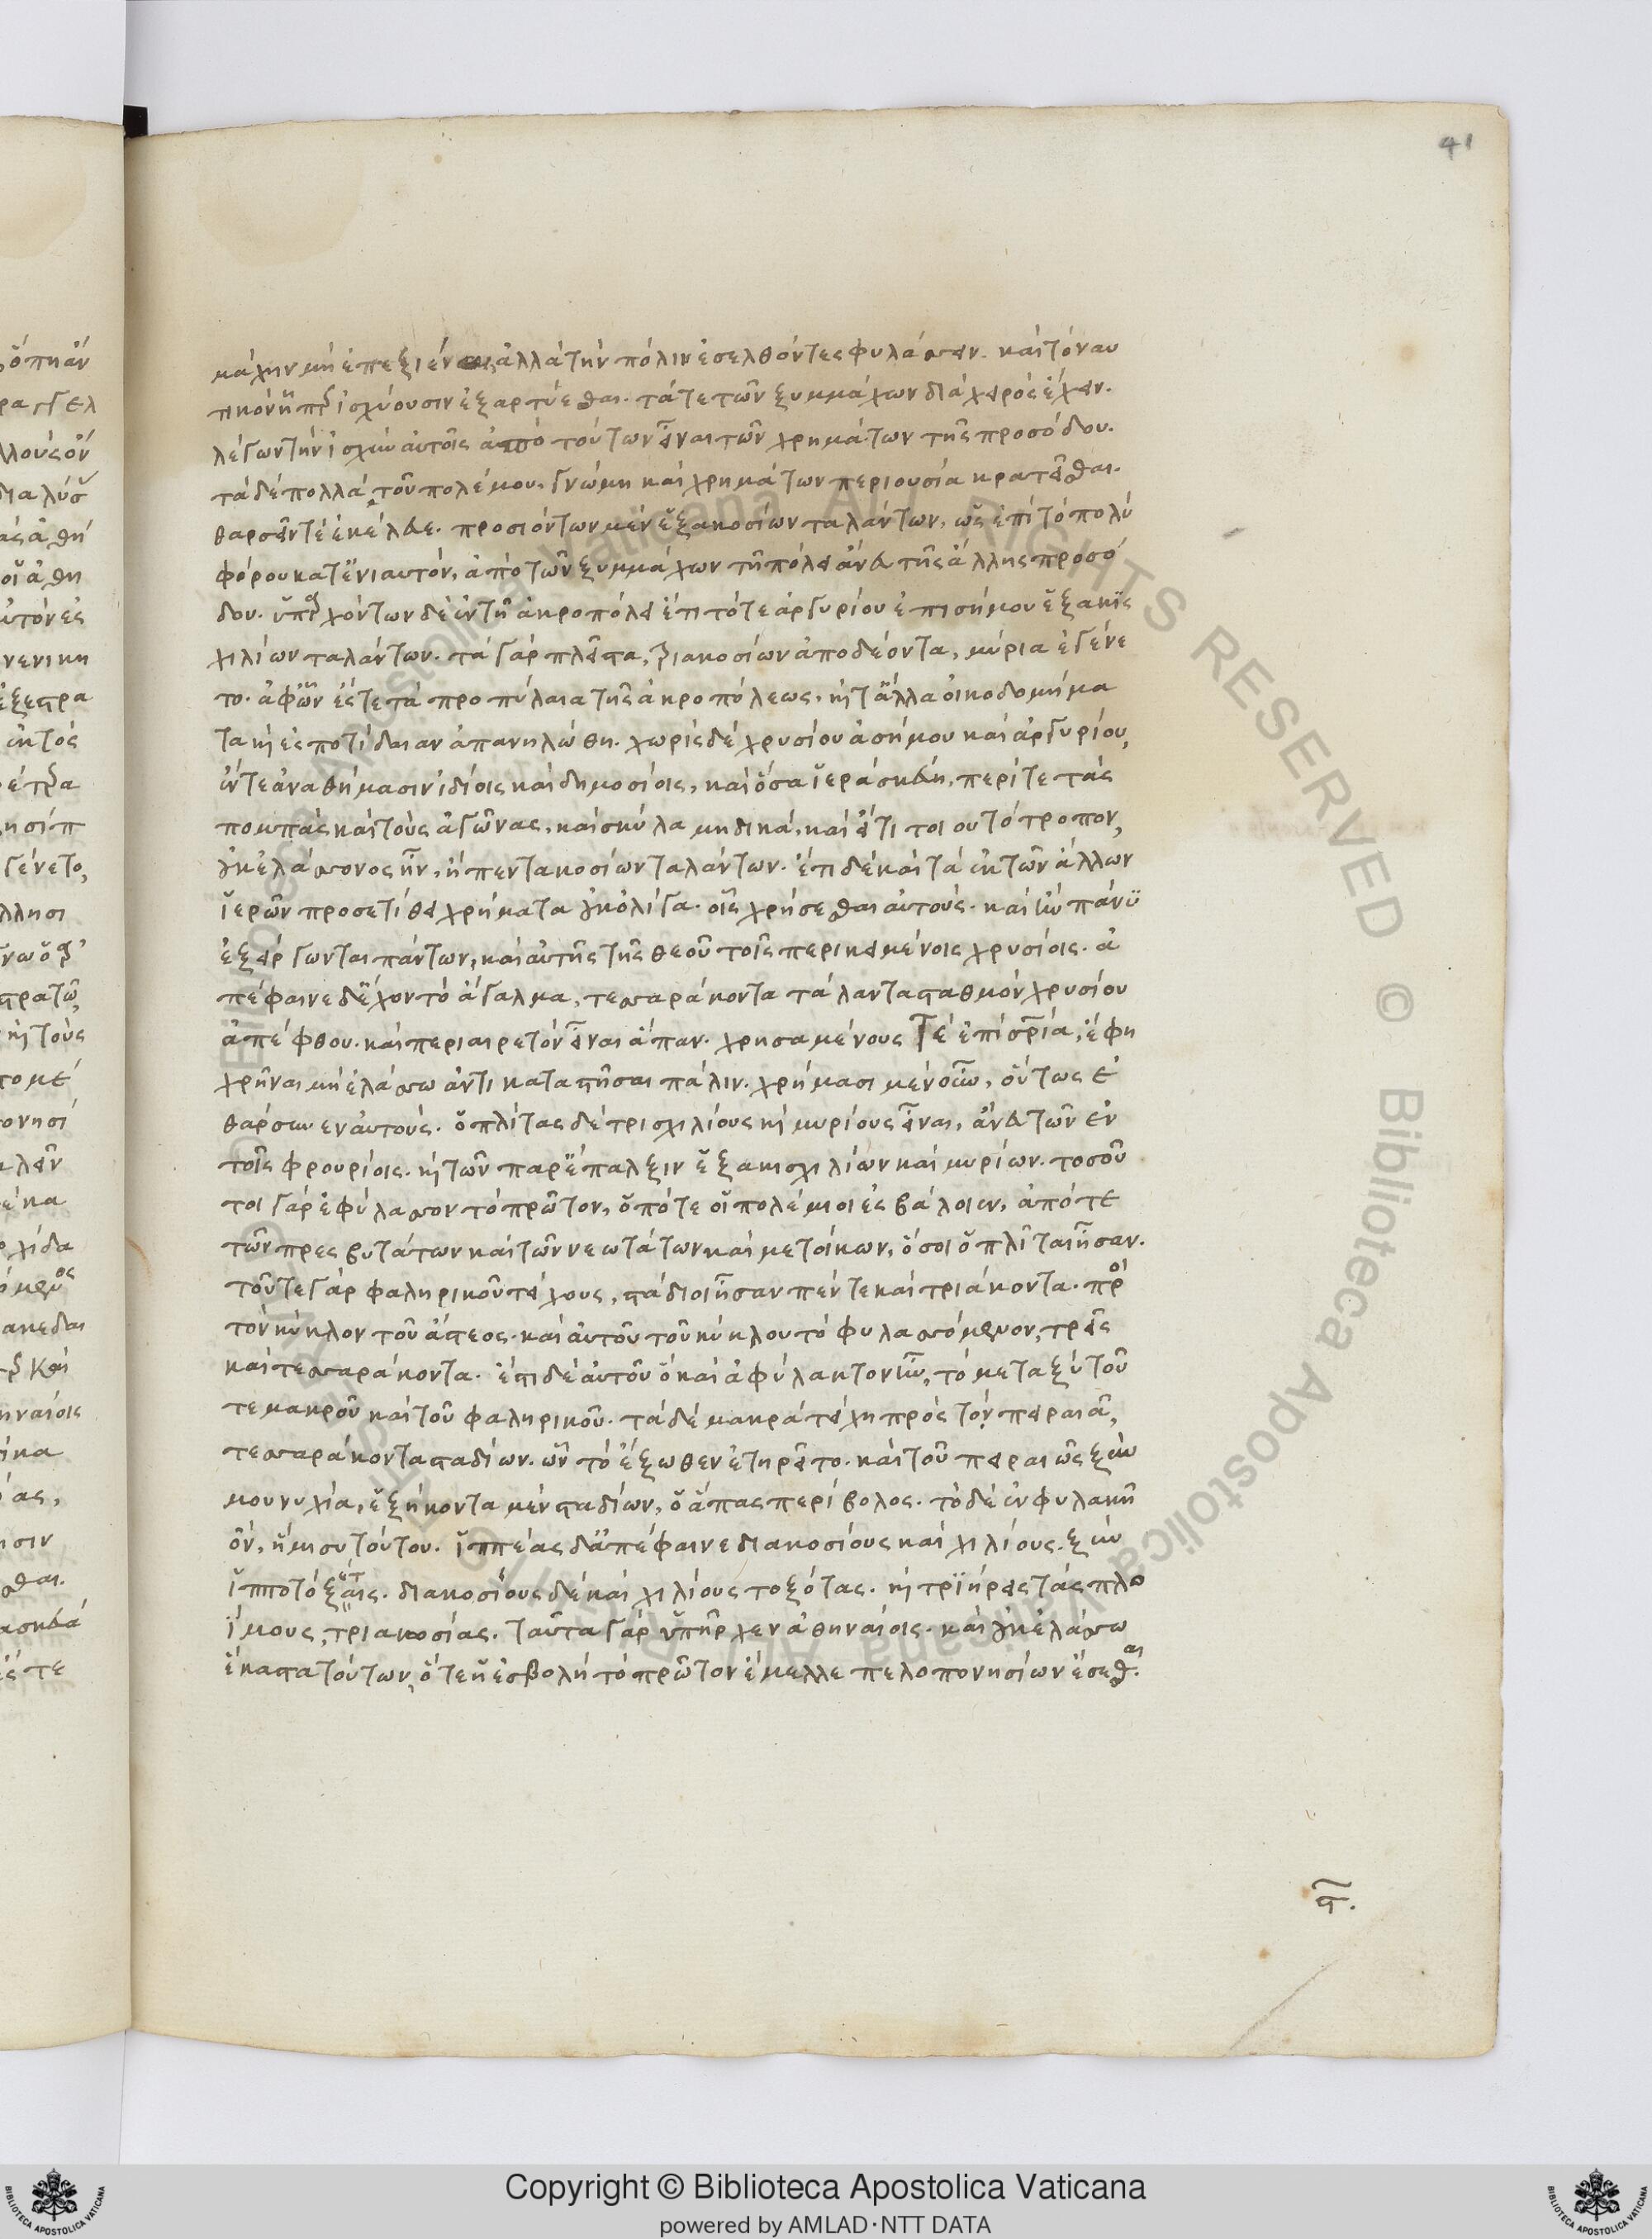 41
μάχην μὴ ἐπεξιέναι, ἀλλὰ τὴν πόλιν ἐσελθόντες φυλάσσειν. καὶ τὸ ναυ
τικὸν ᾗπερ ἰσχύουσιν ἐξαρτύεσθαι. τά τε τῶν ξυμμάχων διὰ χειρὸς ἔχειν.
λέγων τὴν ἰσχὺν αὐτοῖς ἀπὸ τούτων εἶναι τῶν χρημάτων τῆς προσόδου.
τὰ δὲ πολλὰ τοῦ πολέμου, γνώμη καὶ χρημάτων περιουσία κρατεῖσθαι.
θαρσεῖν τὲ ἐκέλευε. προσιόντων μὲν ἑξακοσίων ταλάντων, ὡς ἐπὶ τὸ πολὺ
φόρου κατ' ἐνιαυτὸν, ἀπὸ τῶν ξυμμάχων τῆ πόλει ἄνευ τῆς ἄλλης προσό
δου. ὑπαρχόντων δὲ ἐν τῆ ἀκροπόλει ἔτι τότε ἀργυρίου ἐπισήμου ἑξακις
χιλίων ταλάντων. τὰ γὰρ πλεῖστα, τριακοσίων ἀποδέοντα, μύρια ἐγένε
το. ἀφ' ὧν ἔς τε τὰ προπύλαια τῆς ἀκροπόλεως, κὶ τἄλλα οἰκοδομήμα
τα κὶ ἐς ποτίδαιαν ἀπανηλώθη. χωρὶς δὲ χρυσίου ἀσήμου καὶ ἀργυρίου,
ἔν τε ἀναθήμασιν ἰδίοις καὶ δημοσίοις, καὶ ὅσα ἱερὰ σκεύη, περί τε τὰς
πομπὰς καὶ τοὺς ἀγῶνας, καὶ σκύλα μηδικὰ, καὶ εἴ τι τοιουτότροπον,
οὐκ ἐλάσσονος ἦν, ἢ πεντακοσίων ταλάντων. ἔτι δὲ καὶ τὰ ἐκ τῶν ἄλλων
ἱερῶν προσετίθει χρήματα οὐκ ὀλίγα. οἷς χρήσεσθαι αὐτούς. καὶ ἢν πάνυ
ἐξείργωνται πάντων, καὶ αὐτῆς τῆς θεοῦ τοῖς περικειμένοις χρυσίοις. ἀ
πέφαινε δ' ἔχον τὸ ἄγαλμα, τεσσαράκοντα τάλαντα σταθμὸν χρυσίου
ἀπέφθου. καὶ περιαιρετὸν εἶναι ἅπαν. χρησαμένους τὲ ἐπὶ σωτηρία, ἔφη
χρῆναι μὴ ἐλάσσω ἀντικαταστῆσαι πάλιν. χρήμασι μὲν οὖν, οὕτως ἐ
θάρσυνεν αὐτούς. ὁπλίτας δὲ τρισχιλίους κὶ μυρίους εἶναι, ἄνευ τῶν ἐν
τοῖς φρουρίοις. κὶ τῶν παρ' ἔπαλξιν ἑξακισχιλίων καὶ μυρίων. τοσοῦ
τοι γὰρ ἐφύλασσον τὸ πρῶτον, ὁπότε οἱ πολέμιοι ἐσβάλοιεν, ἀπό τε
τῶν πρεσβυτάτων καὶ τῶν νεωτάτων καὶ μετοίκων, ὅσοι ὁπλῖται ἦσαν.
τοῦ τε γὰρ φαληρικοῦ τείχους, στάδιοι ἦσαν πέντε καὶ τριάκοντα. πρὸς
τὸν κύκλον τοῦ ἄστεος. καὶ αὐτοῦ τοῦ κύκλου τὸ φυλασσόμενον, τρεῖς
καὶ τεσσαράκοντα. ἔστι δὲ αὐτοῦ ὃ καὶ ἀφύλακτον ἦν, τὸ μεταξὺ τοῦ
τε μακροῦ καὶ τοῦ φαληρικοῦ. τὰ δὲ μακρὰ τείχη πρὸς τὸν πειραιᾶ,
τεσσαράκοντα σταδίων. ὧν τὸ ἔξωθεν ἐτηρεῖτο. καὶ τοῦ πειραιῶς ξὺν
μουνυχία, ἑξήκοντα μὲν σταδίων, ὁ ἅπας περίβολος. τὸ δὲ ἐν φυλακῆ
ὂν, ἥμισυ τούτου. ἱππέας δ' ἀπέφαινε διακοσίους καὶ χιλίους. ξὺν
ἱπποτοξόταις. διακοσίους δὲ καὶ χιλίους τοξότας. κὶ τριήρεις τὰς πλο
ΐμους, τριακοσίας. ταῦτα γὰρ ὑπῆρχεν ἀθηναίοις. καὶ οὐκ ἐλάσσω
ἕκαστα τούτων, ὅτε ἡ ἐσβολὴ τὸ πρῶτον ἔμελλε πελοπονησίων ἔσεσθαι.
Copyright © Biblioteca Apostolica Vaticana
powered by AMLAD·NTT DATA